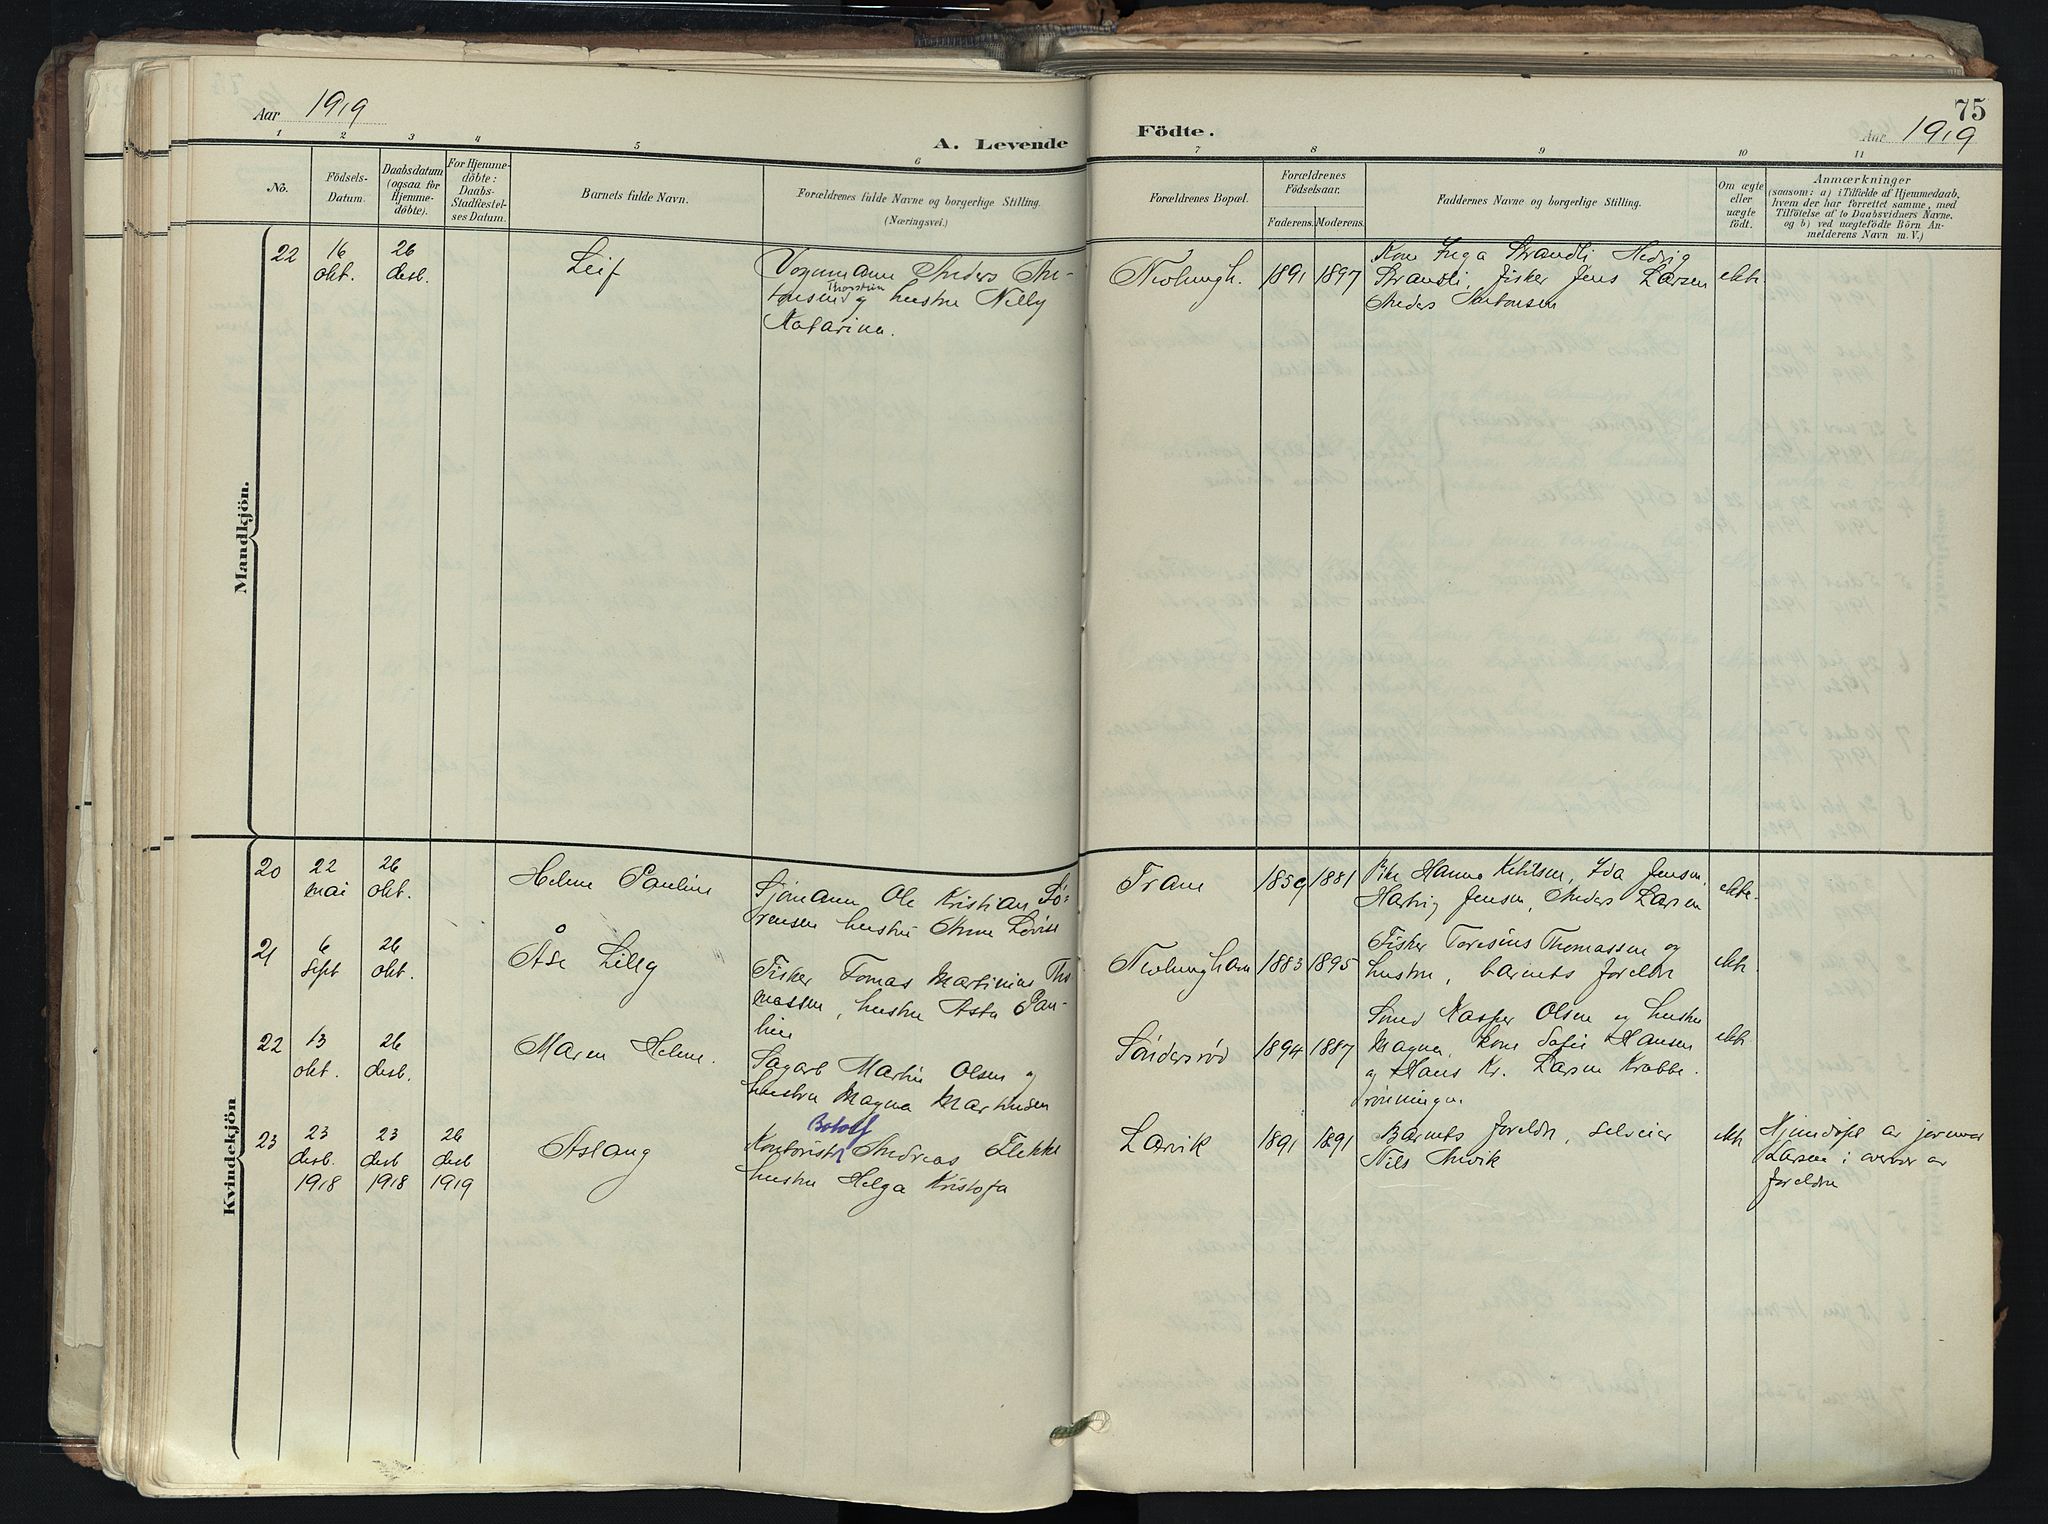 Aar 1919
A. Levende
1 2 3 4 5 6
No.
Födsels-
Datum.
Daabsdatum
(ogsaa for
Hjemme-
döbte).
For Hjemme-
döbte:
Daabs-
Stadfæstel-
ses Datum.
Barnets fulde Navn.
Forældrenes fulde Navne og borgerlige Stilling.
(Næringsvei.)
Mandkjön.
22
16
okt.
26
desb.
Leif
Vognmann Anders An-
Thorstein
tonsen og hustru Nelly
Katarina.
Kvindekjön
20
22
mai
26
okt.
Helene Pauline
Sjömann Ole Kristian Sö-
rensen hustru Anne Lovise
21
6
sept
26
okt.
Åse Lilly
Fisker Tomas Martinius Tho
massen, hustru Asta Pau-
line
22
13
okt.
26
desb.
Maren Helene.
Sagarb Martin Olsen og
hustru Magna Martinsen
23
23
desb.
1918
23
desb
1918
26
desb
1919
Aslaug
Botolf
Kontorist Andreas Flekke
hustru Helga Kristofa
75
Födte.
Aar 1919
7 8 9 10 11
Forældrenes Bopæl.
Forældrenes
Födselsaar.
Faderens. Moderens.
Faddernes Navne og borgerlige Stilling.
Om ægte
eller
uægte
födt.
Anmærkninger
(saasom: a) i Tilfælde af Hjemmedaab,
hvem der har forrettet samme, med
Tilföielse af to Daabsvidners Navne.
og b) ved uægtefödte Börn An-
melderens Navn m. V.)
Nevlungh. 1891 1897
Kone Inga Strandli Hedvig
Strandli, Fisker Jens Larsen
Anders Antonsen
ekte
Fram 1859 1881
Pike Hanna Ketilsen, Ida Jensen,
Hartvig Jensen, Anders Larsen
ekte.
Nevlunghavn 1883 1895
Fisker Toresius Thomassen og
hustru, barnets foreldre
ekte
Söndersröd 1894 1887
Smed Kasper Olsen og hustru
Magna, Kone Sofie Hansen
og Hans Kr. Larsen Krabbe-
rönningen
ekte
Larvik 1891 1891
Barnets foreldre, selveier
Nils Anvik
ekte
Hjemdöpt av jormor
Larsen i overvær av
foreldre